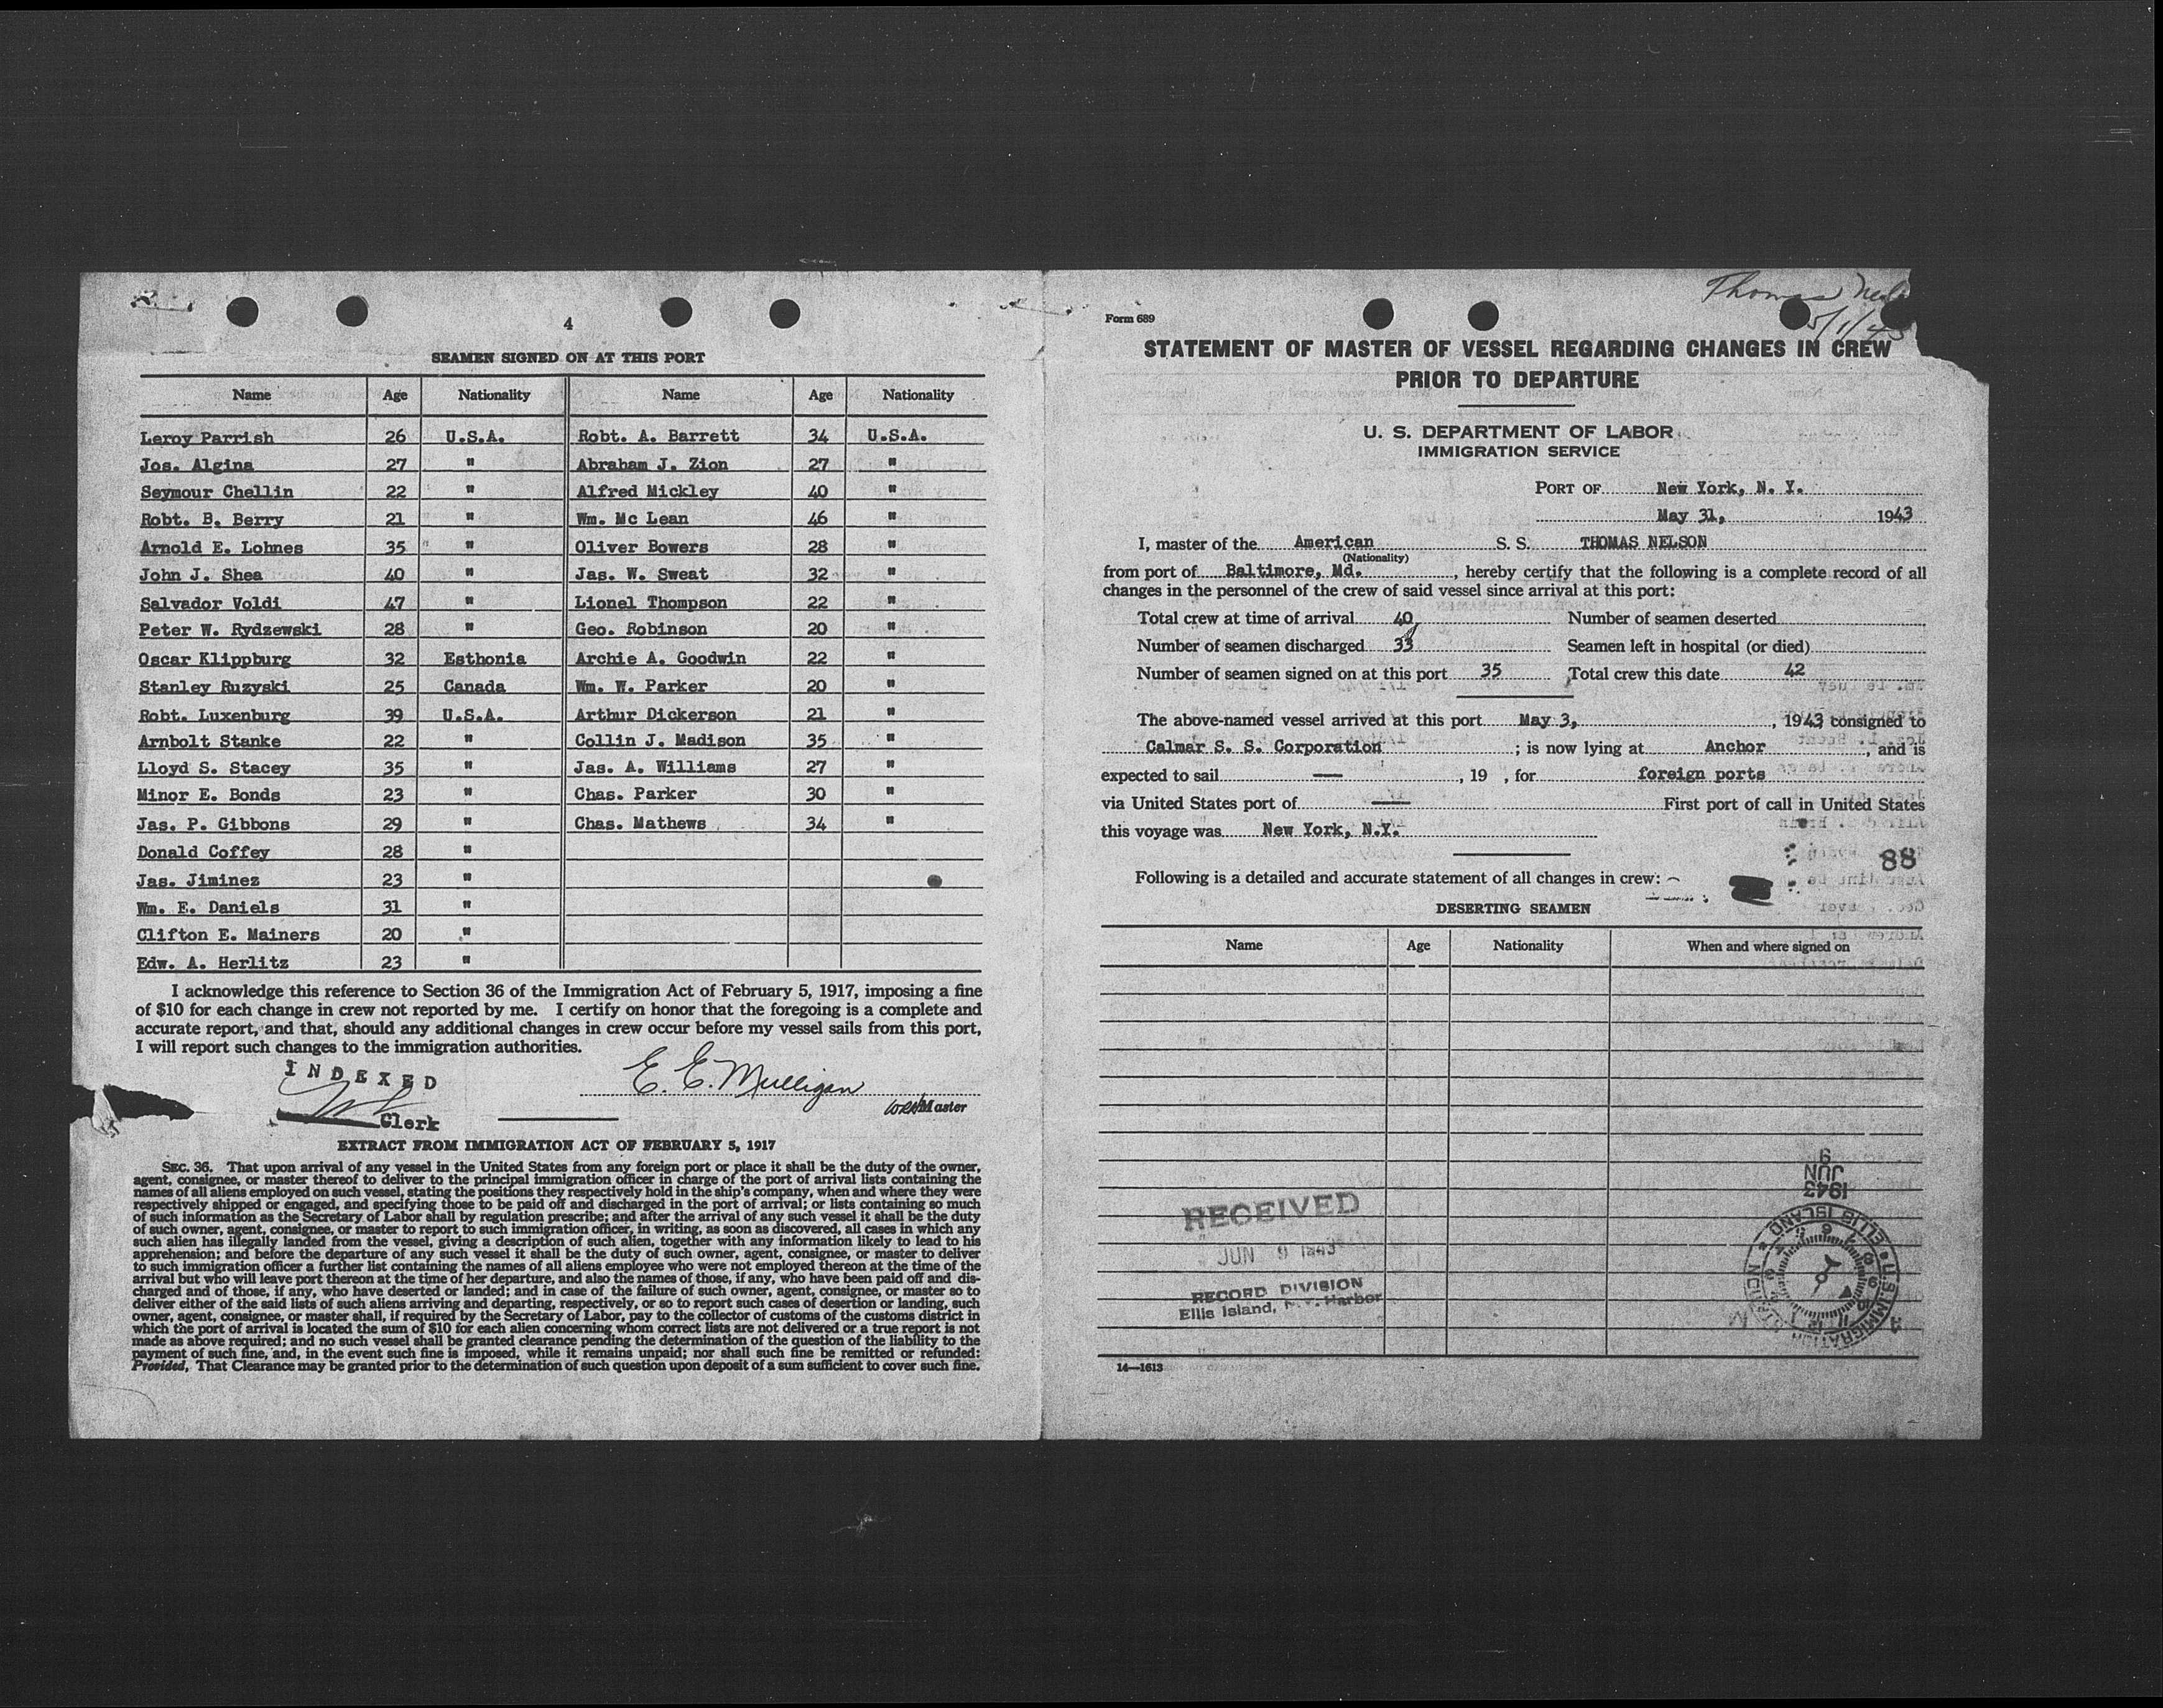 4
SEAMEN SIGNED ON AT THIS PORT
Name Age Nationality Name Age Nationality
Leroy Parrish 26 U.S.A. Robt. A. Barrett 34 U.S.A.
Jos. Algina 27 " Abraham J. Zion 27 "
Seymour Chellin 22 " Alfred Mickley 40 "
Robt. B. Berry 21 " Wm. Mc Lean 46 "
Arnold E. Lohnes 35 " Oliver Bowers 28 "
John J. Shea 40 " Jas. W. Sweat 32 "
Salvador Voldi 47 " Lionel Thompson 22 "
Peter W. Rydzewski 28 " Geo. Robinson 20 "
Oscar Klippburg 32 Esthonia Archie A. Goodwin 22 "
Stanley Ruzyski 25 Canada Wm. W. Parker 20 "
Robt. Luxenburg 39 U.S.A. Arthur Dickerson 21 "
Arnbolt Stanke 22 " Collin J. Madison 35 "
Lloyd S. Stacey 35 " Jas. A. Williams 27 "
Minor E. Bonds 23 " Chas. Parker 30 "
Jas. P. Gibbons 29 " Chas. Mathews 34 "
Donald Coffey 28 "
Jas. Jiminez 23 "
Wm. E. Daniels 31 "
Clifton E. Mainers 20 "
Edw. A. Herlitz 23 "
I acknowledge this reference to Section 36 of the Immigration Act of February 5, 1917, imposing a fine
of $10 for each change in crew not reported by me. I certify on honor that the foregoing is a complete and
accurate report, and that, should any additional changes in crew occur before my vessel sails from this port,
I will report such changes to the immigration authorities.
INDEXED
E. E. Mulligan
Master
Clerk
EXTRACT FROM IMMIGRATION ACT OF FEBRUARY 5, 1917
SEC. 36. That upon arrival of any vessel in the United States from any foreign port or place it shall be the duty of the owner,
agent, consignee, or master thereof to deliver to the principal immigration officer in charge of the port of arrival lists containing the
names of all aliens employed on such vessel, stating the positions they respectively hold in the ship's company, when and where they were
respectively shipped or engaged, and specifying those to be paid off and discharged in the port of arrival; or lists containing so much
of such information as the Secretary of Labor shall by regulation prescribe; and after the arrival of any such vessel it shall be the duty
of such owner, agent, consignee, or master to report to such immigration officer, in writing, as soon as discovered, all cases in which any
such alien has illegally landed from the vessel, giving a description of such alien, together with any information likely to lead to his
apprehension; and before the departure of any such vessel it shall be the duty of such owner, agent, consignee, or master to deliver
to such immigration officer a further list containing the names of all aliens employee who were not employed thereon at the time of the
arrival but who will leave port thereon at the time of her departure, and also the names of those, if any, who have been paid off and dis-
charged and of those, if any, who have deserted or landed; and in case of the failure of such owner, agent, consignee, or master so to
deliver either of the said lists of such aliens arriving and departing, respectively, or so to report such cases of desertion or landing, such
owner, agent, consignee, or master shall, if required by the Secretary of Labor, pay to the collector of customs of the customs district in
which the port of arrival is located the sum of $10 for each alien concerning whom correct lists are not delivered or a true report is not
made as above required; and no such vessel shall be granted clearance pending the determination of the question of the liability to the
payment of such fine, and, in the event such fine is imposed, while it remains unpaid; nor shall such fine be remitted or refunded:
Provided, That Clearance may be granted prior to the determination of such question upon deposit of a sum sufficient to cover such fine.
Thomas
Form 689
STATEMENT OF MASTER OF VESSEL REGARDING CHANGES IN CREW
PRIOR TO DEPARTURE
U. S. DEPARTMENT OF LABOR
IMMIGRATION SERVICE
PORT OF New York, N. Y.
May 31, 1943
I, master of the American S. S. THOMAS NELSON
(Nationality)
from port of Baltimore, Md. , hereby certify that the following is a complete record of all
changes in the personnel of the crew of said vessel since arrival at this port:
Total crew at time of arrival 40 Number of seamen deserted
Number of seamen discharged 33 Seamen left in hospital (or died)
Number of seamen signed on at this port 35 Total crew this date 42
The above-named vessel arrived at this port May 3, , 1943 consigned to
Calmar S. S. Corporation ; is now lying at Anchor , and is
expected to sail — , 19 , for foreign ports
via United States port of — First port of call in United States
this voyage was New York, N.Y.
88
Following is a detailed and accurate statement of all changes in crew:
DESERTING SEAMEN
Name Age Nationality When and where signed on
RECEIVED
JUN 9 1943
RECORD DIVISION
Ellis Island, N.Y. Harbor
9
JUN
1943
ELLIS ISLAND
U.S. IMMIGRATION
14—1613